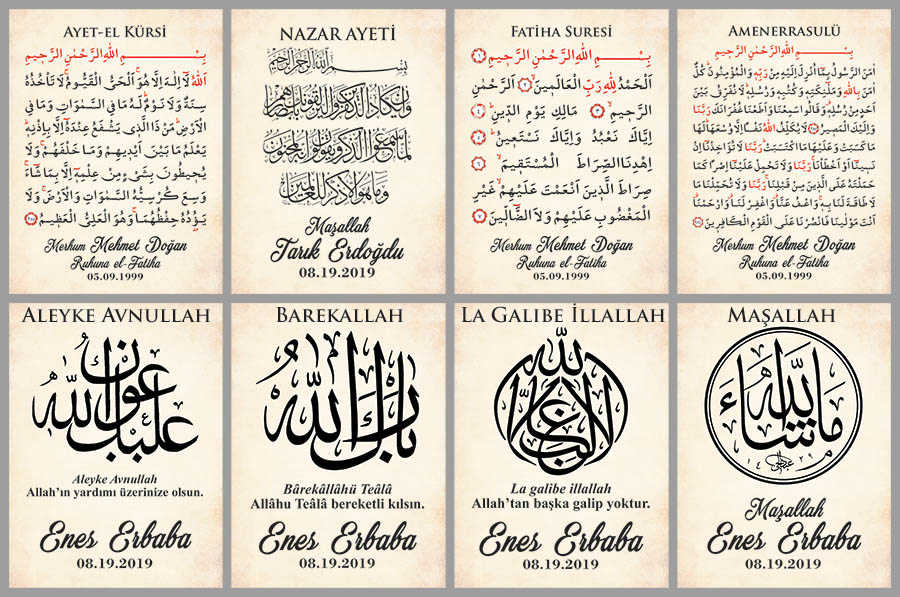 AYET-EL KÜRSİ
بِسْــــــمِ اللهِ الرَّحْمٰنِ الرَّحِيمِ
اَللهُ لَٓا اِلٰهَ اِلَّا هُوَۚ اَلْحَيُّ الْقَيُّومُۚ لَا تَأْخُذُهُ
سِنَةٌ وَلَا نَوْمٌۜ لَهُ مَا فِي السَّمٰوَاتِ وَمَا فِي
الْاَرْضِۜ مَنْ ذَا الَّذِي يَشْفَعُ عِنْدَهُٓ اِلَّا بِاِذْنِهِۜ
يَعْلَمُ مَا بَيْنَ اَيْدِيهِمْ وَمَا خَلْفَهُمْۚ وَلَا
يُحِيطُونَ بِشَيْءٍ مِنْ عِلْمِهِٓ اِلَّا بِمَا شَٓاءَۚ
وَسِعَ كُرْسِيُّهُ السَّمٰوَاتِ وَالْاَرْضَۚ وَلَا
يَؤُ۫دُهُ حِفْظُهُمَاۚ وَهُوَ الْعَلِيُّ الْعَظِيمُ ٢٥٥
Merhum Mehmet Doğan
Ruhuna el-Fatiha
05.09.1999
NAZAR AYETİ
بِسْمِ اللهِ الرَّحْمٰنِ الرَّحِيمِ
وَاِنْ يَكَادُ الَّذِينَ كَفَرُوا لَيُزْلِقُونَكَ بِاَبْصَارِهِمْ
لَمَّا سَمِعُوا الذِّكْرَ وَيَقُولُونَ اِنَّهُ لَمَجْنُونٌ
وَمَا هُوَ اِلَّا ذِكْرٌ لِلْعَالَمِينَ
Maşallah
Tarık Erdoğdu
08.19.2019
FATİHA SURESİ
بِسْــــــمِ اللهِ الرَّحْمٰنِ الرَّحِيمِ ١
اَلْحَمْدُ لِلّٰهِ رَبِّ الْعَالَمِينَۙ ٢ اَلرَّحْمٰنِ
الرَّحِيمِۙ ٣ مَالِكِ يَوْمِ الدِّينِۜ ٤
اِيَّاكَ نَعْبُدُ وَاِيَّاكَ نَسْتَعِينُۜ ٥
اِهْدِنَا الصِّرَاطَ الْمُسْتَقِيمَۙ ٦
صِرَاطَ الَّذِينَ اَنْعَمْتَ عَلَيْهِمْ غَيْرِ
الْمَغْضُوبِ عَلَيْهِمْ وَلَا الضَّٓالِّينَ ٧
Merhum Mehmet Doğan
Ruhuna el-Fatiha
05.09.1999
AMENERRASULÜ
بِسْــــــمِ اللهِ الرَّحْمٰنِ الرَّحِيمِ
اٰمَنَ الرَّسُولُ بِمَٓا اُنْزِلَ اِلَيْهِ مِنْ رَبِّهِ وَالْمُؤْمِنُونَۜ كُلٌّ
اٰمَنَ بِاللهِ وَمَلٰٓئِكَتِهِ وَكُتُبِهِ وَرُسُلِهِۜ لَا نُفَرِّقُ بَيْنَ
اَحَدٍ مِنْ رُسُلِهِ۠ وَقَالُوا سَمِعْنَا وَاَطَعْنَا غُفْرَانَكَ رَبَّنَا
وَاِلَيْكَ الْمَصِيرُ ٢٨٥ لَا يُكَلِّفُ اللهُ نَفْسًا اِلَّا وُسْعَهَاۜ لَهَا
مَا كَسَبَتْ وَعَلَيْهَا مَا اكْتَسَبَتْۜ رَبَّنَا لَا تُؤَاخِذْنَٓا اِنْ
نَسِينَٓا اَوْ اَخْطَأْنَاۚ رَبَّنَا وَلَا تَحْمِلْ عَلَيْنَٓا اِصْرًا كَمَا
حَمَلْتَهُ عَلَى الَّذِينَ مِنْ قَبْلِنَاۚ رَبَّنَا وَلَا تُحَمِّلْنَا مَا
لَا طَاقَةَ لَنَا بِهِۚ وَاعْفُ عَنَّا۠ وَاغْفِرْ لَنَا۠ وَارْحَمْنَا۠
اَنْتَ مَوْلٰينَا فَانْصُرْنَا عَلَى الْقَوْمِ الْكَافِرِينَ
Merhum Mehmet Doğan
Ruhuna el-Fatiha
05.09.1999
ALEYKE AVNULLAH
عليك عون الله
Aleyke Avnullah
Allah'ın yardımı üzerinize olsun.
Enes Erbaba
08.19.2019
BAREKALLAH
بارك الله
Bârekâllâhü Teâlâ
Allâhu Teâlâ bereketli kılsın.
Enes Erbaba
08.19.2019
LA GALIBE İLLALLAH
لا غالب الا الله
La galibe illallah
Allah'tan başka galip yoktur.
Enes Erbaba
08.19.2019
MAŞALLAH
ما شاء الله
Maşallah
Enes Erbaba
08.19.2019